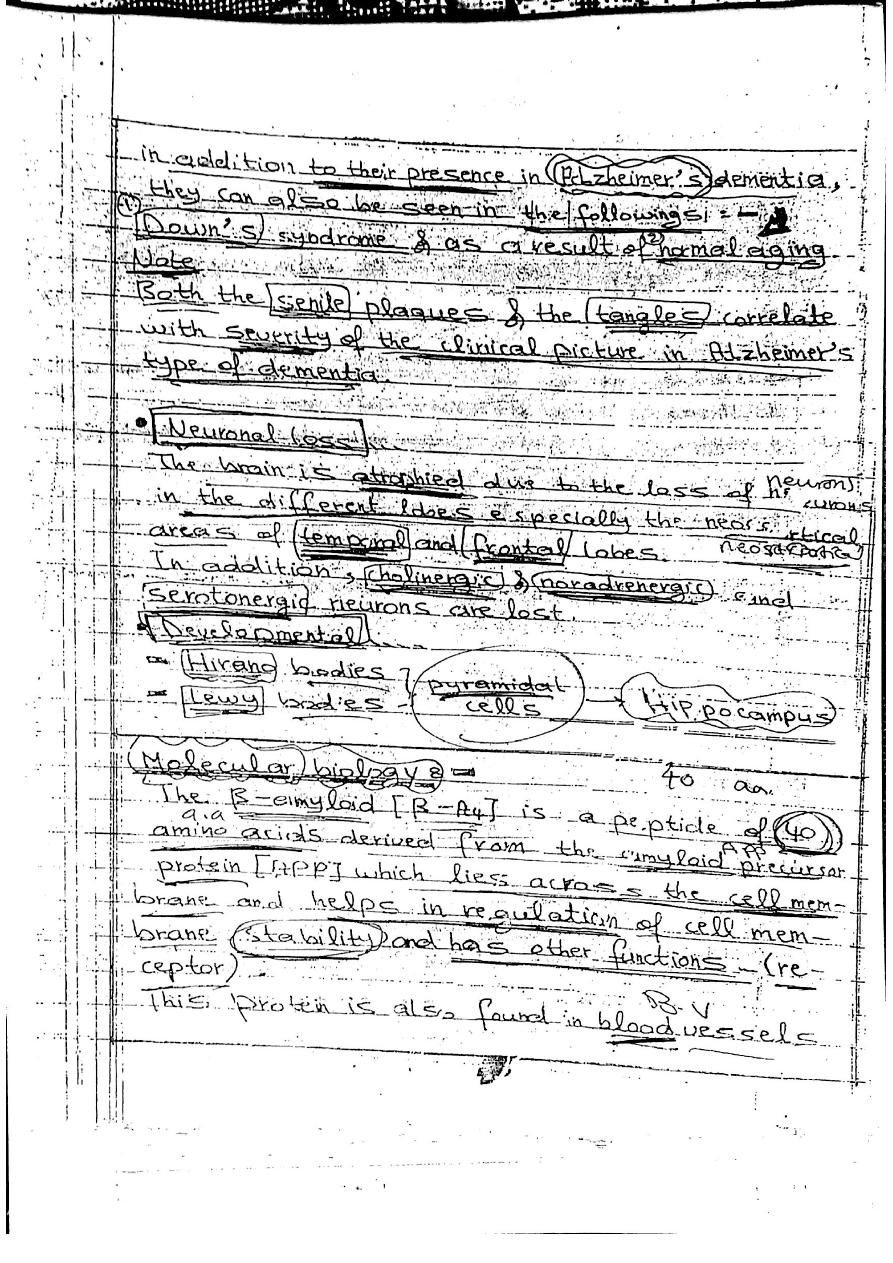 in addition to their presence in Alzheimer's dementia,
they can also be seen in the followings: -
① Down's syndrome & as a result of ② normal aging
Note
Both the senile plaques & the tangles correlate
with severity of the clinical picture in Alzheimer's
type of dementia.
• Neuronal loss
The brain is atrophied due to the loss of neurons
in the different lobes especially the
areas of temporal and frontal lobes.
In addition, cholinergic & noradrenergic and
serotonergic neurons are lost.
• Developmental
- Hirano bodies
- Lewy bodies
pyramidal
cells → Hippocampus
Molecular biology: -
40 aa.
The β-amyloid [β-A4] is a peptide of 40
a.a
amino acids derived from the amyloid precursor
APP
protein [APP] which liess across the cell mem-
brane and helps in regulation of cell mem-
brane stability and has other functions - (re-
ceptor).
B.V
This protein is also found in blood vessels